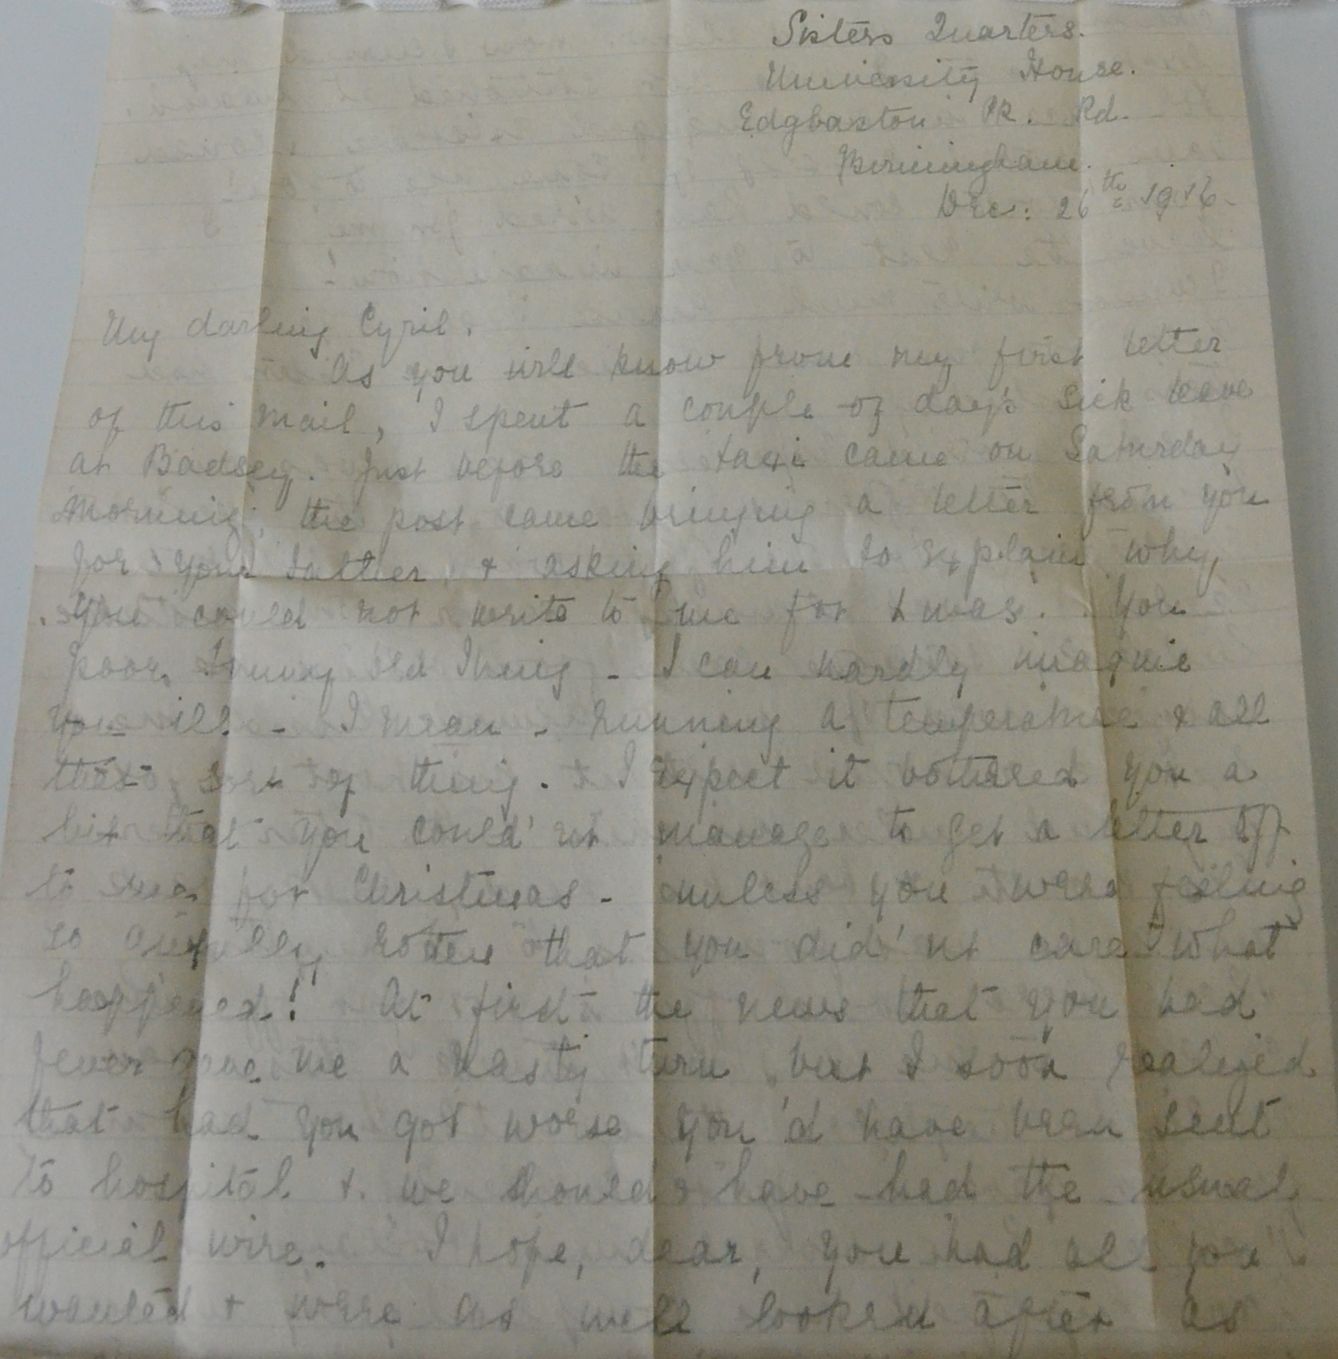 Sisters Quarters.
University House.
Edgbaston Pk. Rd.
Birmingham.
Dec: 26th 1916.
My darling Cyril.
As you will know from my first letter
of this mail, I spent a couple of day's sick leave
at Badsey. Just before the taxi came on Saturday
morning, the post came bringing a letter from you
for your father, & asking him to explain why
you could not write to me for Xmas. You
poor, old thing - I can hardly imagine
you ill - I mean - running a temperature & all
that sort of thing. & I expect it bothered you a
bit that you could'nt manage to get a letter off
to me for Christmas - unless you were feeling
so awfully rotten that you did'nt care what
happened! At first the news that you had
fever gave me a nasty turn, but I soon realized
that had you got worse you'd have been sent
to hospital & we should have had the usual
official wire. I hope, dear, you had all you
wanted & were as well looked after as